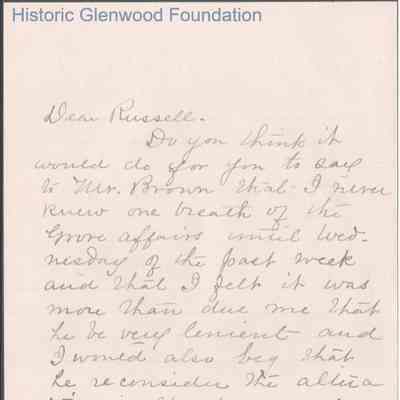 Historic Glenwood Foundation
Dear Russell.
Do you think it
would do for you to say
to Mr. Brown that I never
knew one breath of the
Grove affairs until Wed-
nesday of the past week
and that I felt it was
more than due me that
he be very lenient and
I would also beg that
he reconsider the